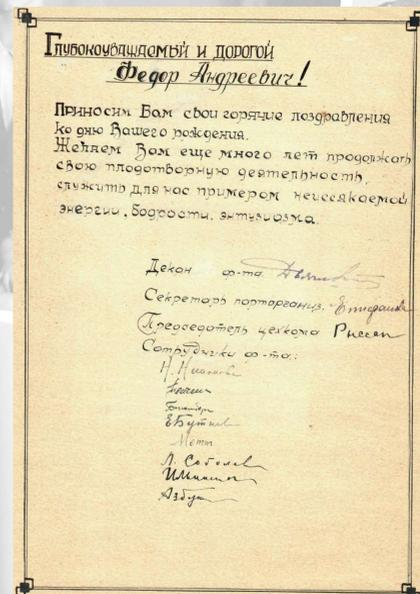 Глубокоуважаемый и дорогой
Федор Андреевич!
Приносим Вам свои горячие поздравления
ко дню Вашего рождения.
Желаем Вам еще много лет продолжать
свою плодотворную деятельность,
служить для нас примером неиссякаемой
энергии, бодрости, энтузиазма.
Декан ф-та
Секретарь парторганиз. Епифанова
Председатель цехкома Рыссек
Сотрудники ф-та:
Н.
Е Бутнев
Л. Соболев